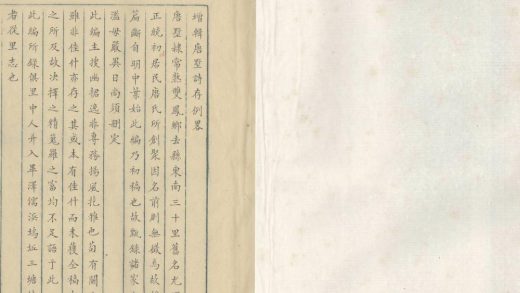 增輯唐墅詩存例畧
唐墅隸常熟雙鳳鄉去縣東南三十里舊名尤
正統初居民唐氏所創聚因名前則無徵焉故
篇斷自明中葉始此編乃初稿也故甄錄諸家
濫毋嚴異日尚須刪定
此編主搜幽招逸非專務揚風扢雅也茍有關
雖非佳什亦存之其或本有佳什而未獲全稿
之所及故決擇之精蒐羅之富均不足語于此
此編所錄俱里中人并入畢澤儒浜塢坵三塘
者從里志也